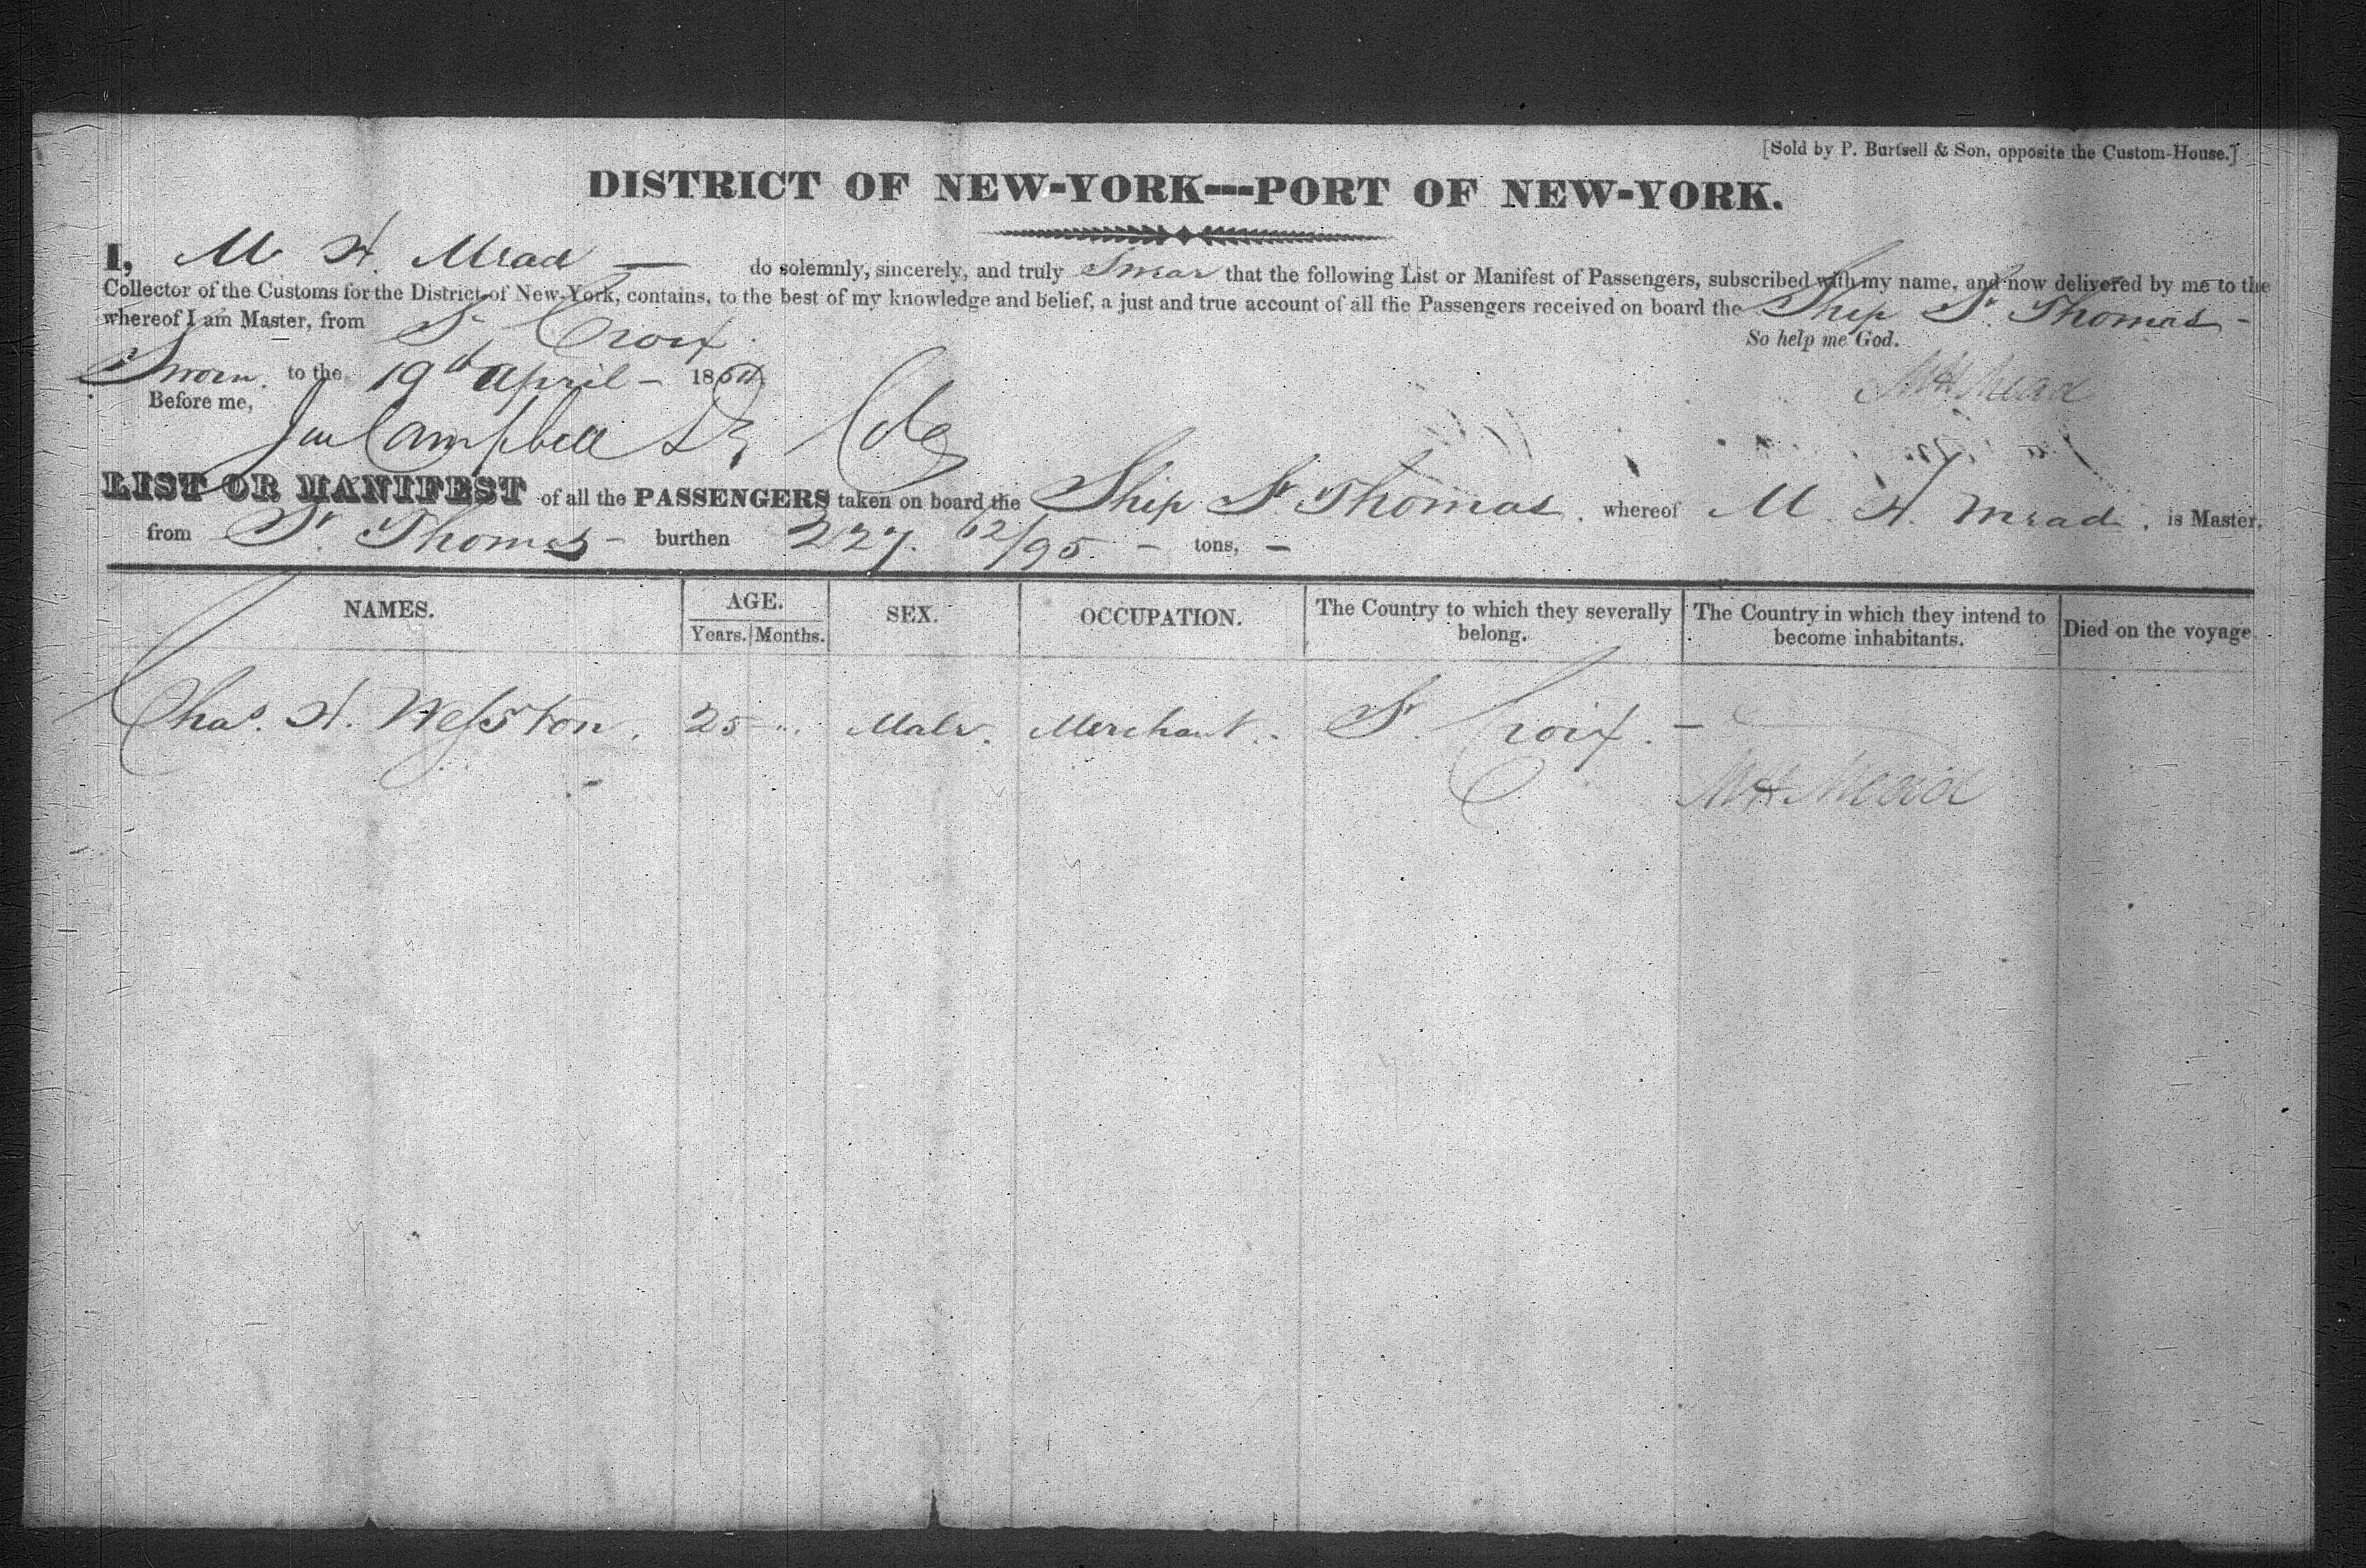 [Sold by P. Bartsell & Son, opposite the Custom-House.]
DISTRICT OF NEW-YORK—PORT OF NEW-YORK.
I, M. H. Mead — do solemnly, sincerely, and truly Swear that the following List or Manifest of Passengers, subscribed with my name, and now delivered by me to the
Collector of the Customs for the District of New-York, contains, to the best of my knowledge and belief, a just and true account of all the Passengers received on board the Ship St. Thomas -
whereof I am Master, from St. Croix.
So help me God.
Sworn. to the 19th April - 1850
MH Mead
Before me,
Campbell
LIST OR MANIFEST of all the PASSENGERS taken on board the Ship St. Thomas. whereof M. H. Mead. is Master,
from St. Thomas - burthen 227. 62/95 - tons, -
NAMES. AGE. SEX. OCCUPATION. The Country to which they severally belong. The Country in which they intend to become inhabitants. Died on the voyage.
Years. Months.
Chas. H. Wesston. 25 " Male. Merchant. St. Croix. -
MH Mead